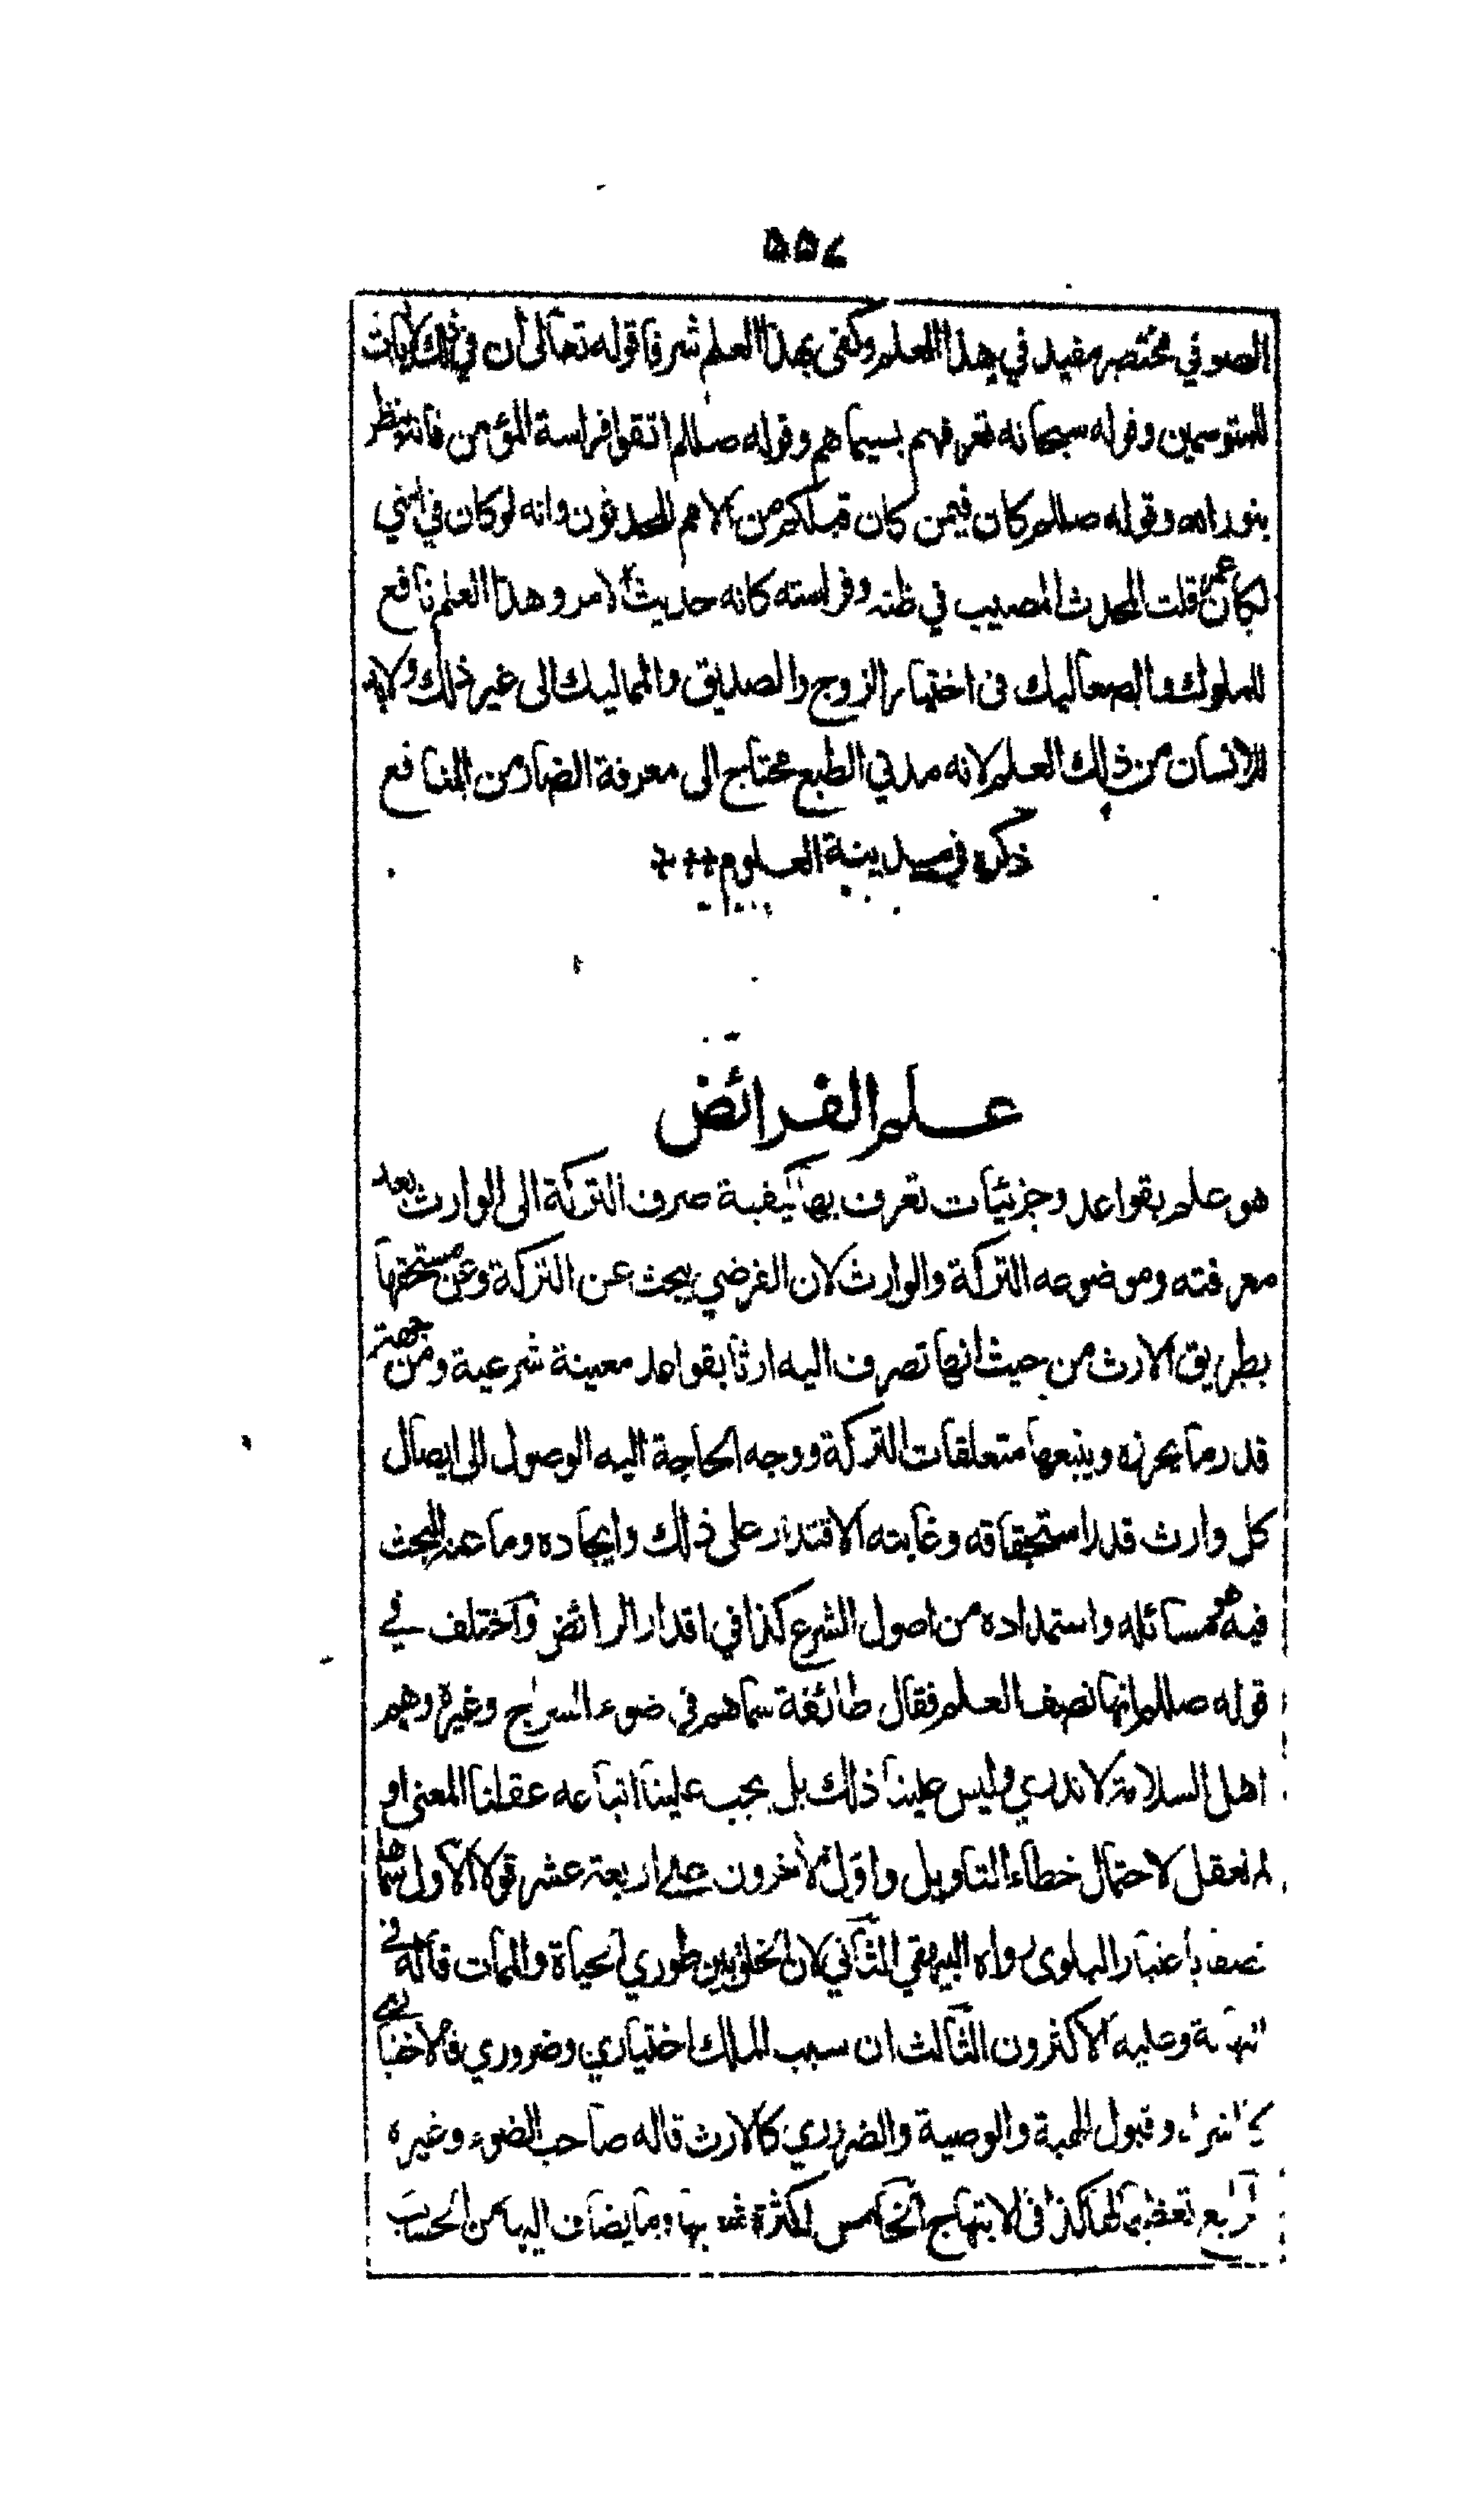 ٥٥٧
الصوفي مختصر مفيد في هذا العلم وكفى بهذا العلم شرفا قوله تعالى ان في ذلك لآيات
للمتوسمين وقوله سبحانه تعرفهم بسيماهم وقوله صللم اتقوا فراسة المؤمن فانه ينظر
بنور الله وقوله صللم كان فيمن كان قبلكم من الامم المحدثون وانه لو كان في امتي
لكان عمر قلت المحدث المصيب في ظنه وفراسته كانه حديث الامر وهذا العلم نافع
للملوك والصعاليك في اختيار الزوج والصديق والمماليك الى غير ذلك ولا بد
للانسان من ذلك العلم لانه مدني الطبع محتاج الى معرفة الضار من المنافع
ذكره في مدينة العلوم
علم الفرائض
هو علم بقواعد وجزئيات تعرف بها كيفية صرف التركة الى الوارث بعد
معرفته وموضوعه التركة والوارث لان الفرضي يبحث عن التركة وعن مستحقها
بطريق الارث من حيث انها تصرف اليه ارثا بقواعد معينة شرعية ومن جهة
قدر ما يحرزه ويتبعها متعلقات التركة ووجه الحاجة اليه الوصول الى ايصال
كل وارث قدر استحقاقه وغايته الاقتدار على ذلك وايجاده وما عنه البحث
فيه هو مسائله واستمداده من اصول الشرع كذا في اقدار الرائض واختلف في
قوله صللم انها نصف العلم فقال طائفة سماهم في ضوء السراج وغيره وهم
اهل السلامة لا ندري وليس علينا ذلك بل يجب علينا اتباعه عقلنا المعنى او
لم نعقل لاحتمال خطاء التاويل واول الآخرون على اربعة عشر قولا الاول سماها
نصفا باعتبار البلوى رواه البيهقي الثاني لان الخلق بين طوري الحياة والممات قاله في
النهاية وعليه الاكثرون الثالث ان سبب الملك اختياري وضروري فالاختياري
كالشراء وقبول الهبة والوصية والضروري كالارث قاله صاحب الضوء وغيره
الرابع تعظيما لها كذا في الابتهاج الخامس لكثرة شعبها وما يضاف اليها من الحساب